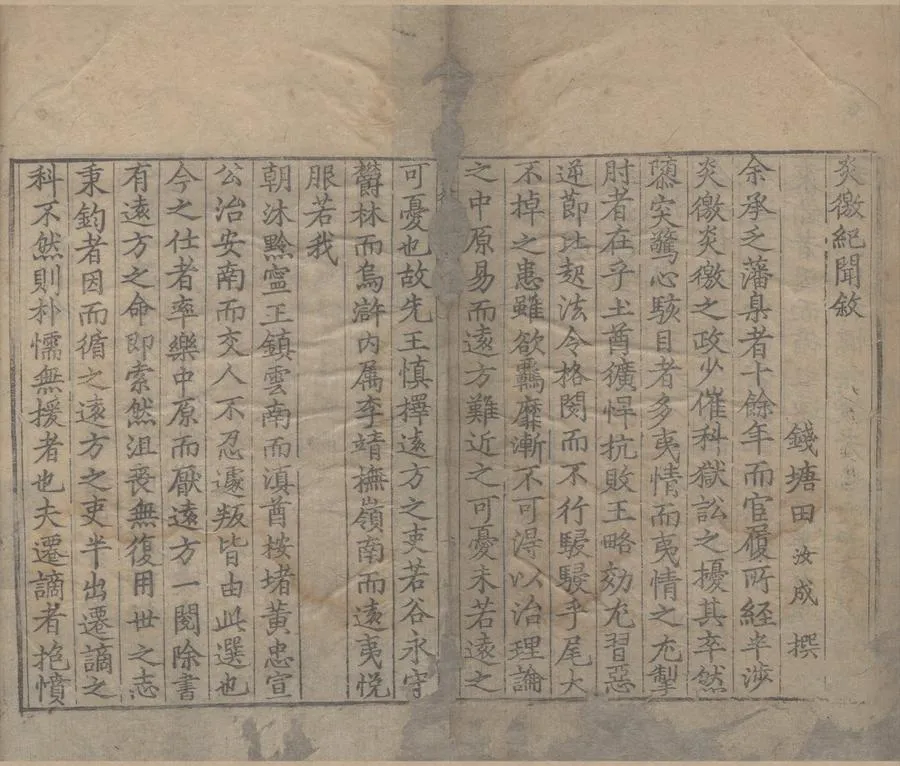 炎徼紀聞敘
錢塘田汝成撰
余承乏藩臬者十餘年而官履所經半涉
炎徼炎徼之政少催科獄訟之擾其卒然
隳突驚心駭目者多夷情而夷情之尤掣
肘者在乎土酋獷悍抗敗王略効尤習惡
逆莭比起法令格閡而不行駸駸乎尾大
不掉之患雖欲羈靡漸不可淂以治理論
之中原易而遠方難近之可憂未若遠之
可憂也故先王慎擇遠方之吏若谷永守
欝林而烏滸内属李靖撫嶺南而遠夷恱
服若我
朝沐黔寧王鎮雲南而滇酋桉堵黃忠宣
公治安南而交人不忍遽叛皆由此選也
今之仕者率樂中原而厭遠方一閱除書
有遠方之命即索然沮喪無復用世之志
秉鈞者因而循之遠方之吏半出遷謫之
科不然則朴懦無援者也夫遷謫者抱憤